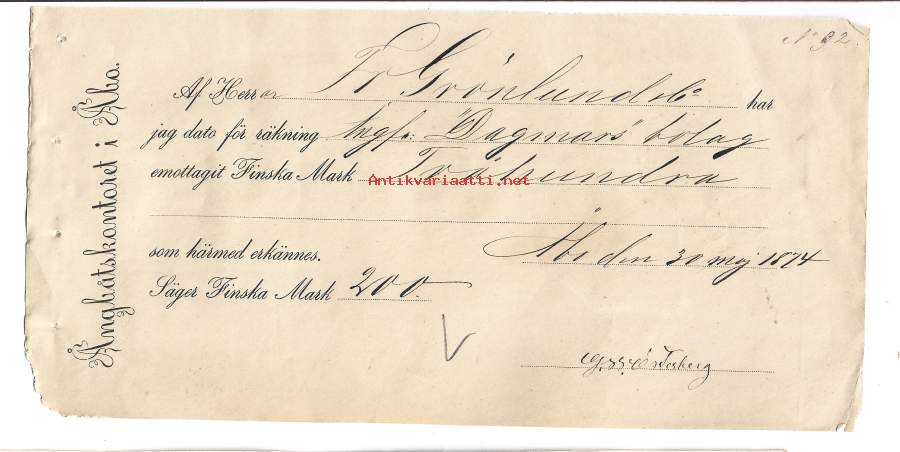 N° 92.
Ångbåtskontoret i Åbo.
Af Herrar Fr Grönlund & Co har
jag dato för räkning ångf: "Dagmars" bolag
emottagit Finska Mark Tvåhundra
Antikvariaatti.net
som härmed erkännes. Åbo den 30 maj 1874
Säger Finska Mark 200.
Österberg